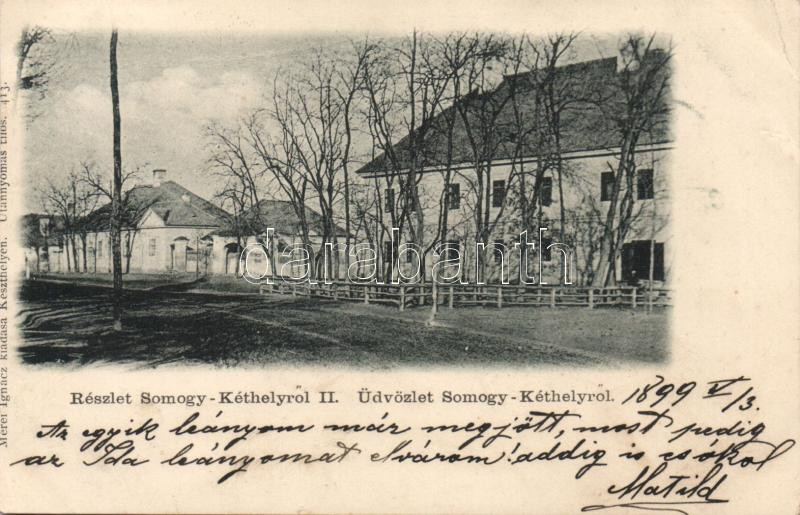 Merei Ignácz kiadása Keszthelyen. Utánnyomás tilos. 413.
darabanth
Részlet Somogy-Kéthelyről II. Üdvözlet Somogy-Kéthelyről.
1899 V/3.
Az egyik leányom már megjött, most pedig
az Ida leányomat elvárom! addig is csókol
Matild